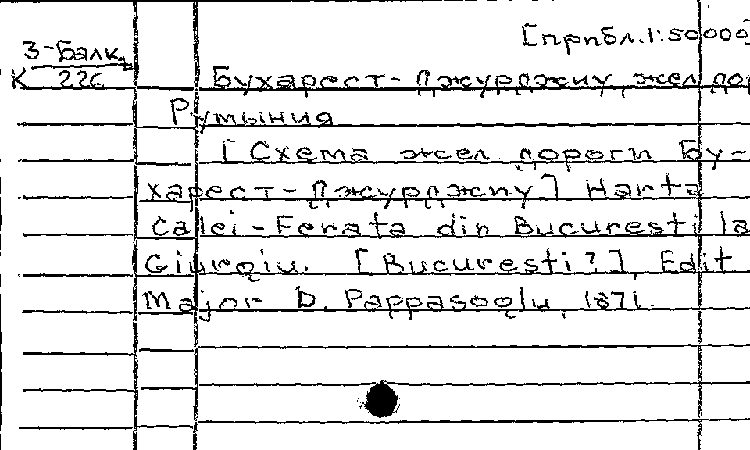 [прибл. 1:50000]
3-Балк.
К 226
Бухарест-Джурджиу, жел дор
Румыния
[Схема жел дороги Бу-
харест-Джурджиу] Harta
Calei-Ferata din Bucuresti la
Giurgiu. [Bucuresti?], Edit
Major D. Pappasoglu, 1871.